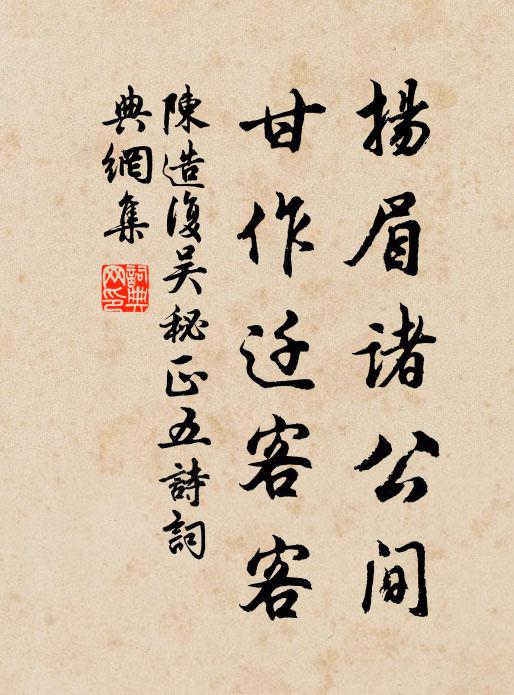 揚眉諸公間
甘作迁客客
陳造復吴秘正五詩詞
典網集
詞典
网印